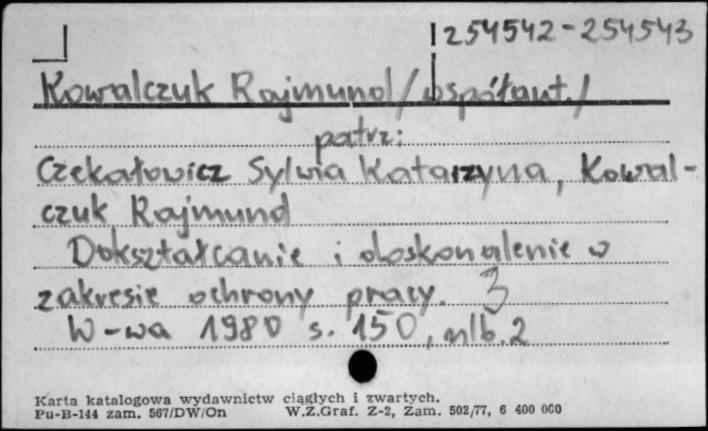 254542-254543
Kowalczuk Rajmund /współaut./
patrz:
Czekałowicz Sylwia Katarzyna, Kowal-
czuk Rajmund
Dokształcanie i doskonalenie w
zakresie ochrony pracy. 3
W-wa 1980 s. 150, nlb. 2
Karta katalogowa wydawnictw ciągłych i zwartych.
Pu-B-144 zam. 567/DW/On W.Z.Graf. Z-2, Zam. 502/77, 6 400 000